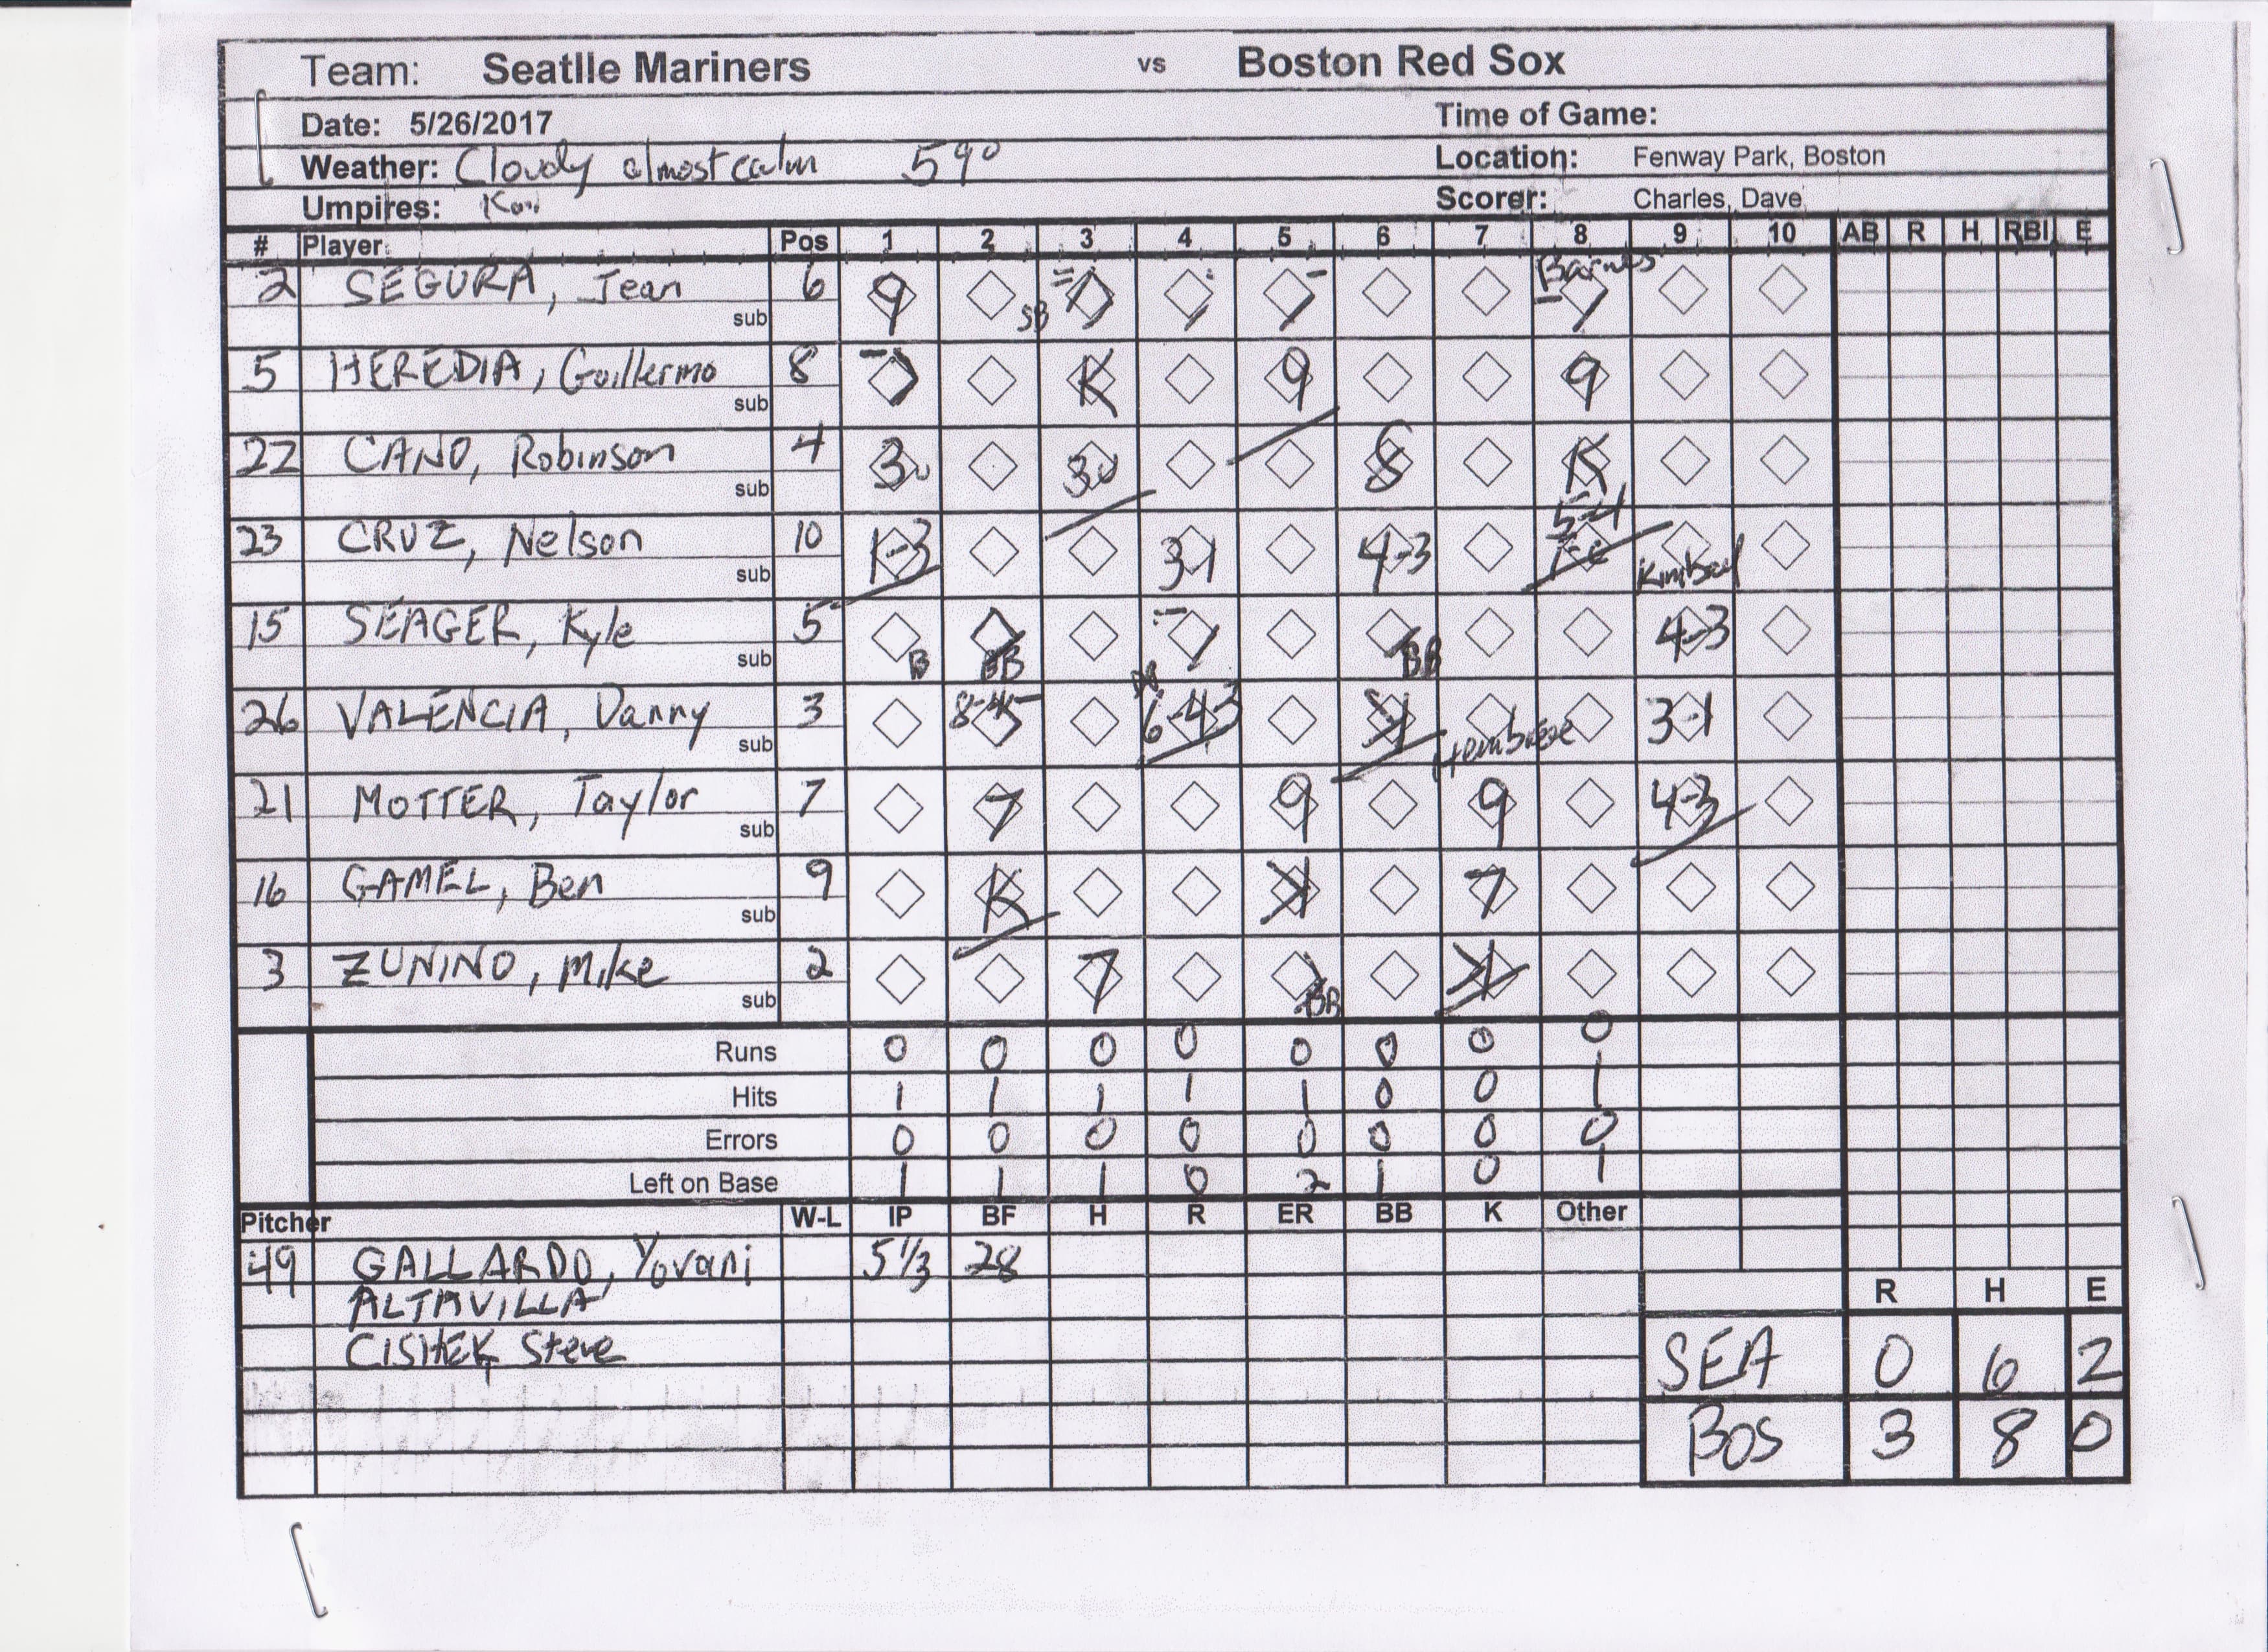 Team: Seatlle Mariners vs Boston Red Sox
Date: 5/26/2017 Time of Game:
Weather: Cloudy almost calm 59° Location: Fenway Park, Boston
Umpires: Scorer: Charles, Dave
# Player Pos 1 2 3 4 5 6 7 8 9 10 AB R H RBI E
Barnes
2 SEGURA, Jean 6 9 7 7 7 7
sub SB
5 HEREDIA, Guillermo 8 7 K 9 9
sub
22 CANO, Robinson 4 3U 3U 8 K
sub
23 CRUZ, Nelson 10 1-3 3-1 4-3 5-4 Kimbrel
sub
15 SEAGER, Kyle 5 BB 7 BB 4-3
sub B
26 VALENCIA, Danny 3 8-4-5 6-4-3 K 3-1
sub Hembree
21 MOTTER, Taylor 7 7 9 9 4-3
sub
16 GAMEL, Ben 9 K K 7
sub
3 ZUNINO, Mike 2 7 BB K
sub
Runs 0 0 0 0 0 0 0 0
Hits 1 1 1 1 1 0 0 1
Errors 0 0 0 0 0 0 0 0
Left on Base 1 1 1 0 2 1 0 1
Pitcher W-L IP BF H R ER BB K Other
49 GALLARDO, Yovani 5 1/3 28
ALTAVILLA
CISHEK Steve
R H E
SEA 0 6 2
BOS 3 8 0